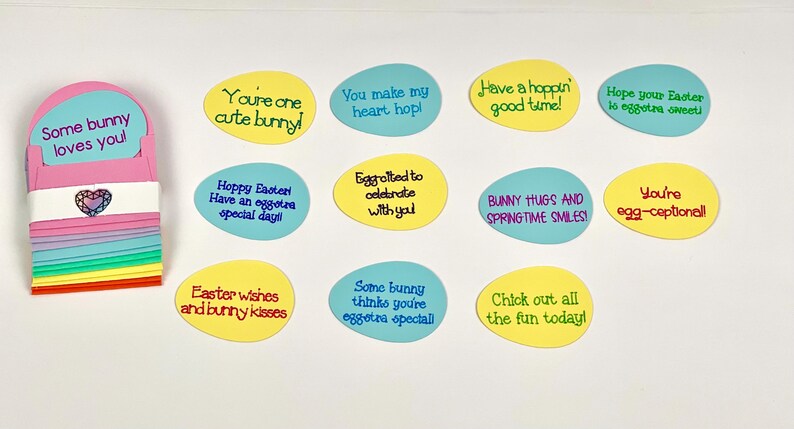 Some bunny
loves you!
You're one
cute bunny!
You make my
heart hop!
Have a hoppin'
good time!
Hope your Easter
is eggstra sweet!
Hoppy Easter!
Have an eggstra
special day!!
Egg-cited to
celebrate
with you!
BUNNY HUGS AND
SPRINGTIME SMILES!
You're
egg-ceptional!
Easter wishes
and bunny kisses
Some bunny
thinks you're
eggstra special!
Chick out all
the fun today!